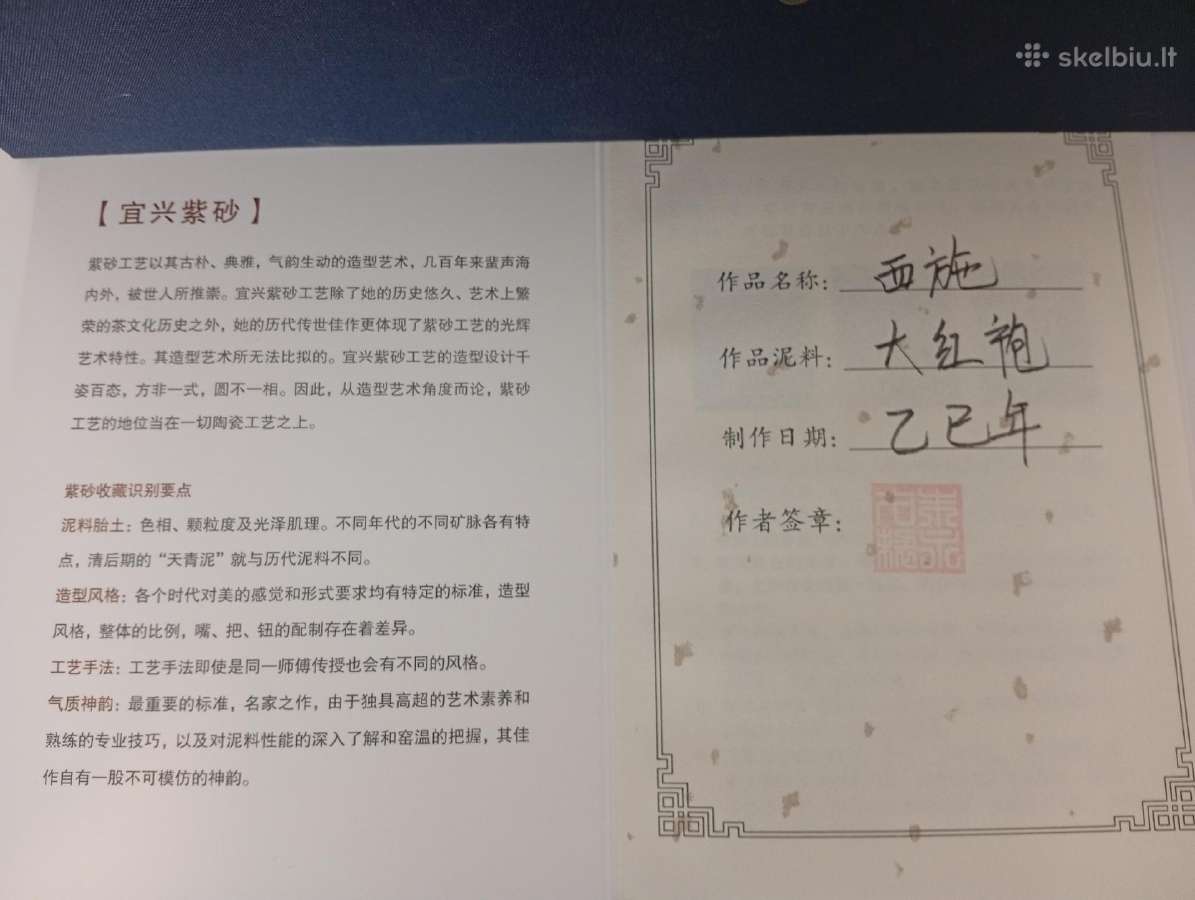 skelbiu.lt
【宜兴紫砂】
紫砂工艺以其古朴、典雅，气韵生动的造型艺术，几百年来蜚声海
内外，被世人所推崇。宜兴紫砂工艺除了她的历史悠久、艺术上繁
荣的茶文化历史之外，她的历代传世佳作更体现了紫砂工艺的光辉
艺术特性。其造型艺术所无法比拟的。宜兴紫砂工艺的造型设计千
姿百态，方非一式，圆不一相。因此，从造型艺术角度而论，紫砂
工艺的地位当在一切陶瓷工艺之上。
紫砂收藏识别要点
泥料胎土：色相、颗粒度及光泽肌理。不同年代的不同矿脉各有特
点，清后期的“天青泥”就与历代泥料不同。
造型风格：各个时代对美的感觉和形式要求均有特定的标准，造型
风格，整体的比例，嘴、把、钮的配制存在着差异。
工艺手法：工艺手法即使是同一师傅传授也会有不同的风格。
气质神韵：最重要的标准，名家之作，由于独具高超的艺术素养和
熟练的专业技巧，以及对泥料性能的深入了解和窑温的把握，其佳
作自有一股不可模仿的神韵。
作品名称：西施
作品泥料：大红袍
制作日期：乙巳年
作者签章：